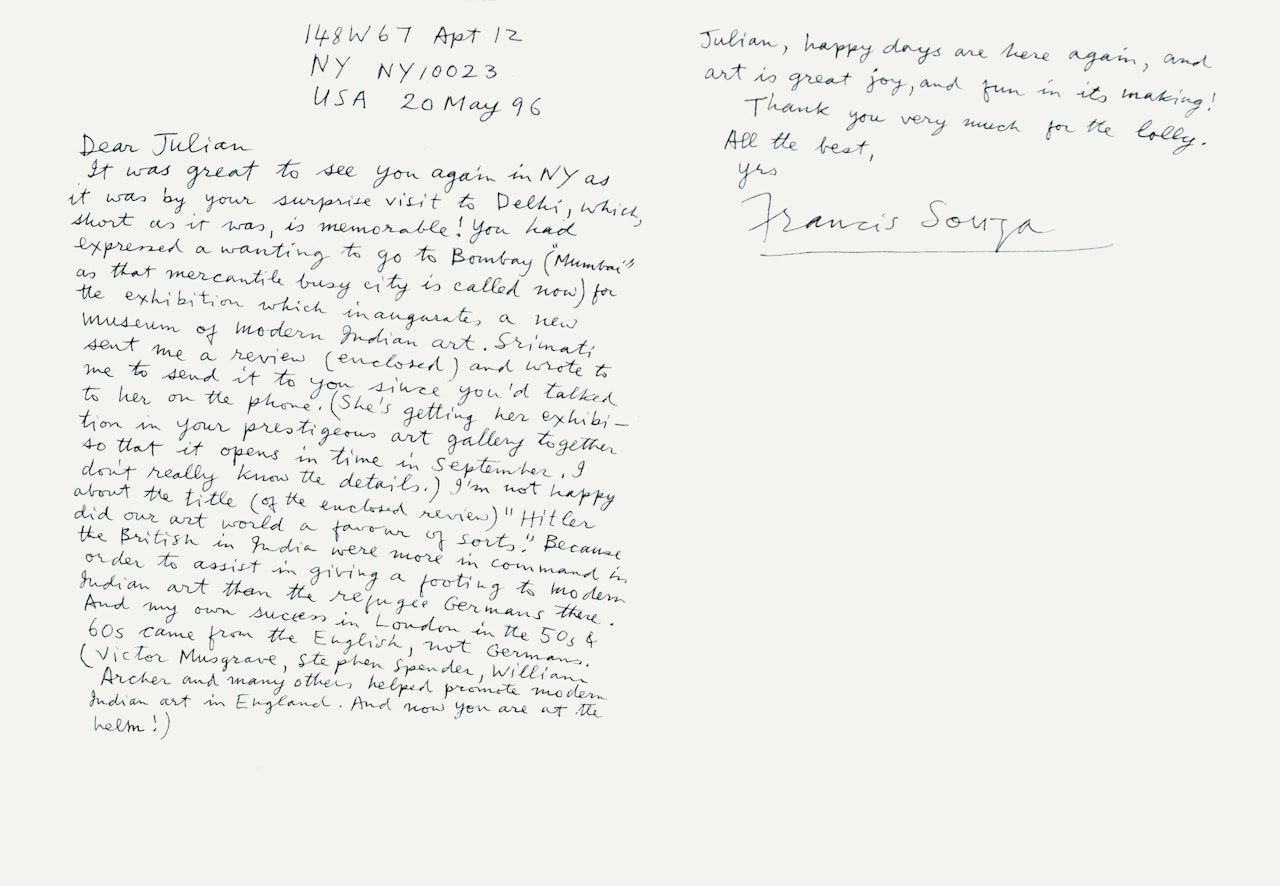 148W67 Apt 12
NY NY10023
USA 20 May 96
Dear Julian
It was great to see you again in NY as
it was by your surprise visit to Delhi, which,
short as it was, is memorable! You had
expressed a wanting to go to Bombay ("Mumbai"
as that mercantile busy city is called now) for
the exhibition which inaugurates a new
museum of modern Indian art. Srimati
sent me a review (enclosed) and wrote to
me to send it to you since you'd talked
to her on the phone. (She's getting her exhibi–
tion in your prestigeous art gallery together
so that it opens in time in September. I
don't really know the details.) I'm not happy
about the title (of the enclosed review) "Hitler
did our art world a favour of sorts." Because
the British in India were more in command in
order to assist in giving a footing to modern
Indian art than the refugee Germans there.
And my own success in London in the 50s &
60s came from the English, not Germans.
(Victor Musgrave, Stephen Spender, William
Archer and many others helped promote modern
Indian art in England. And now you are at the
helm!)
Julian, happy days are here again, and
art is great joy, and fun in its making!
Thank you very much for the lolly.
All the best,
yrs
Francis Souza